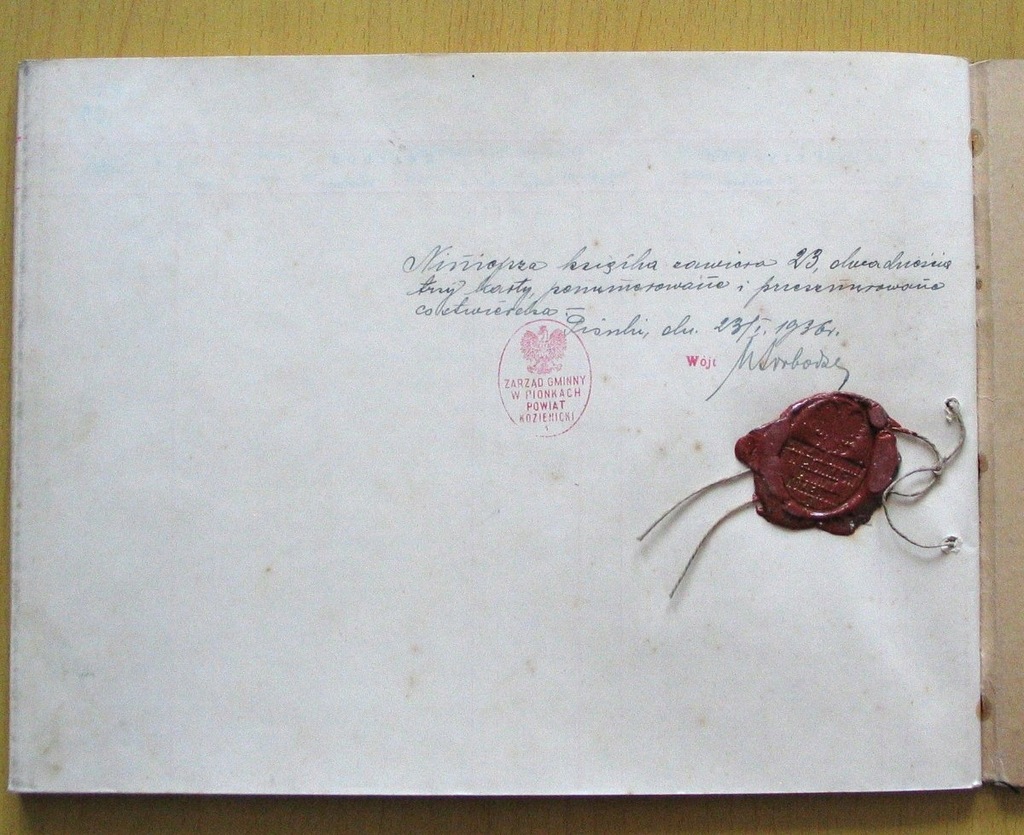 Niniejsza księżka zawiera 23, dwadzieścia
trzy karty, ponumerowane i przesznurowane
co stwierdza.
Pionki, dn. 23/I. 1936 r.
Wójt
ZARZĄD GMINNY
W PIONKACH
POWIAT
KOZIENICKI
1